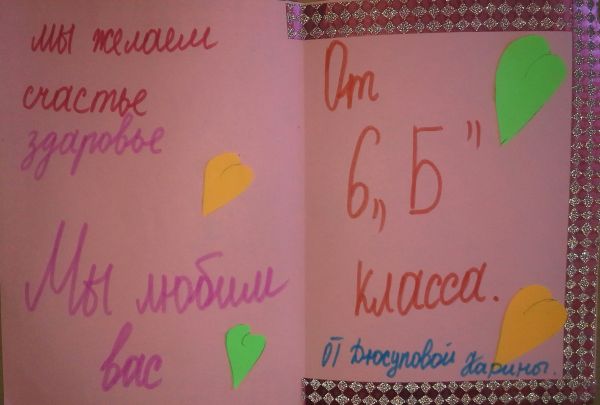 мы желаем
счастье
здаровье
Мы любим
вас
От
6 „Б"
класса.
от Дюсуповой Карины.